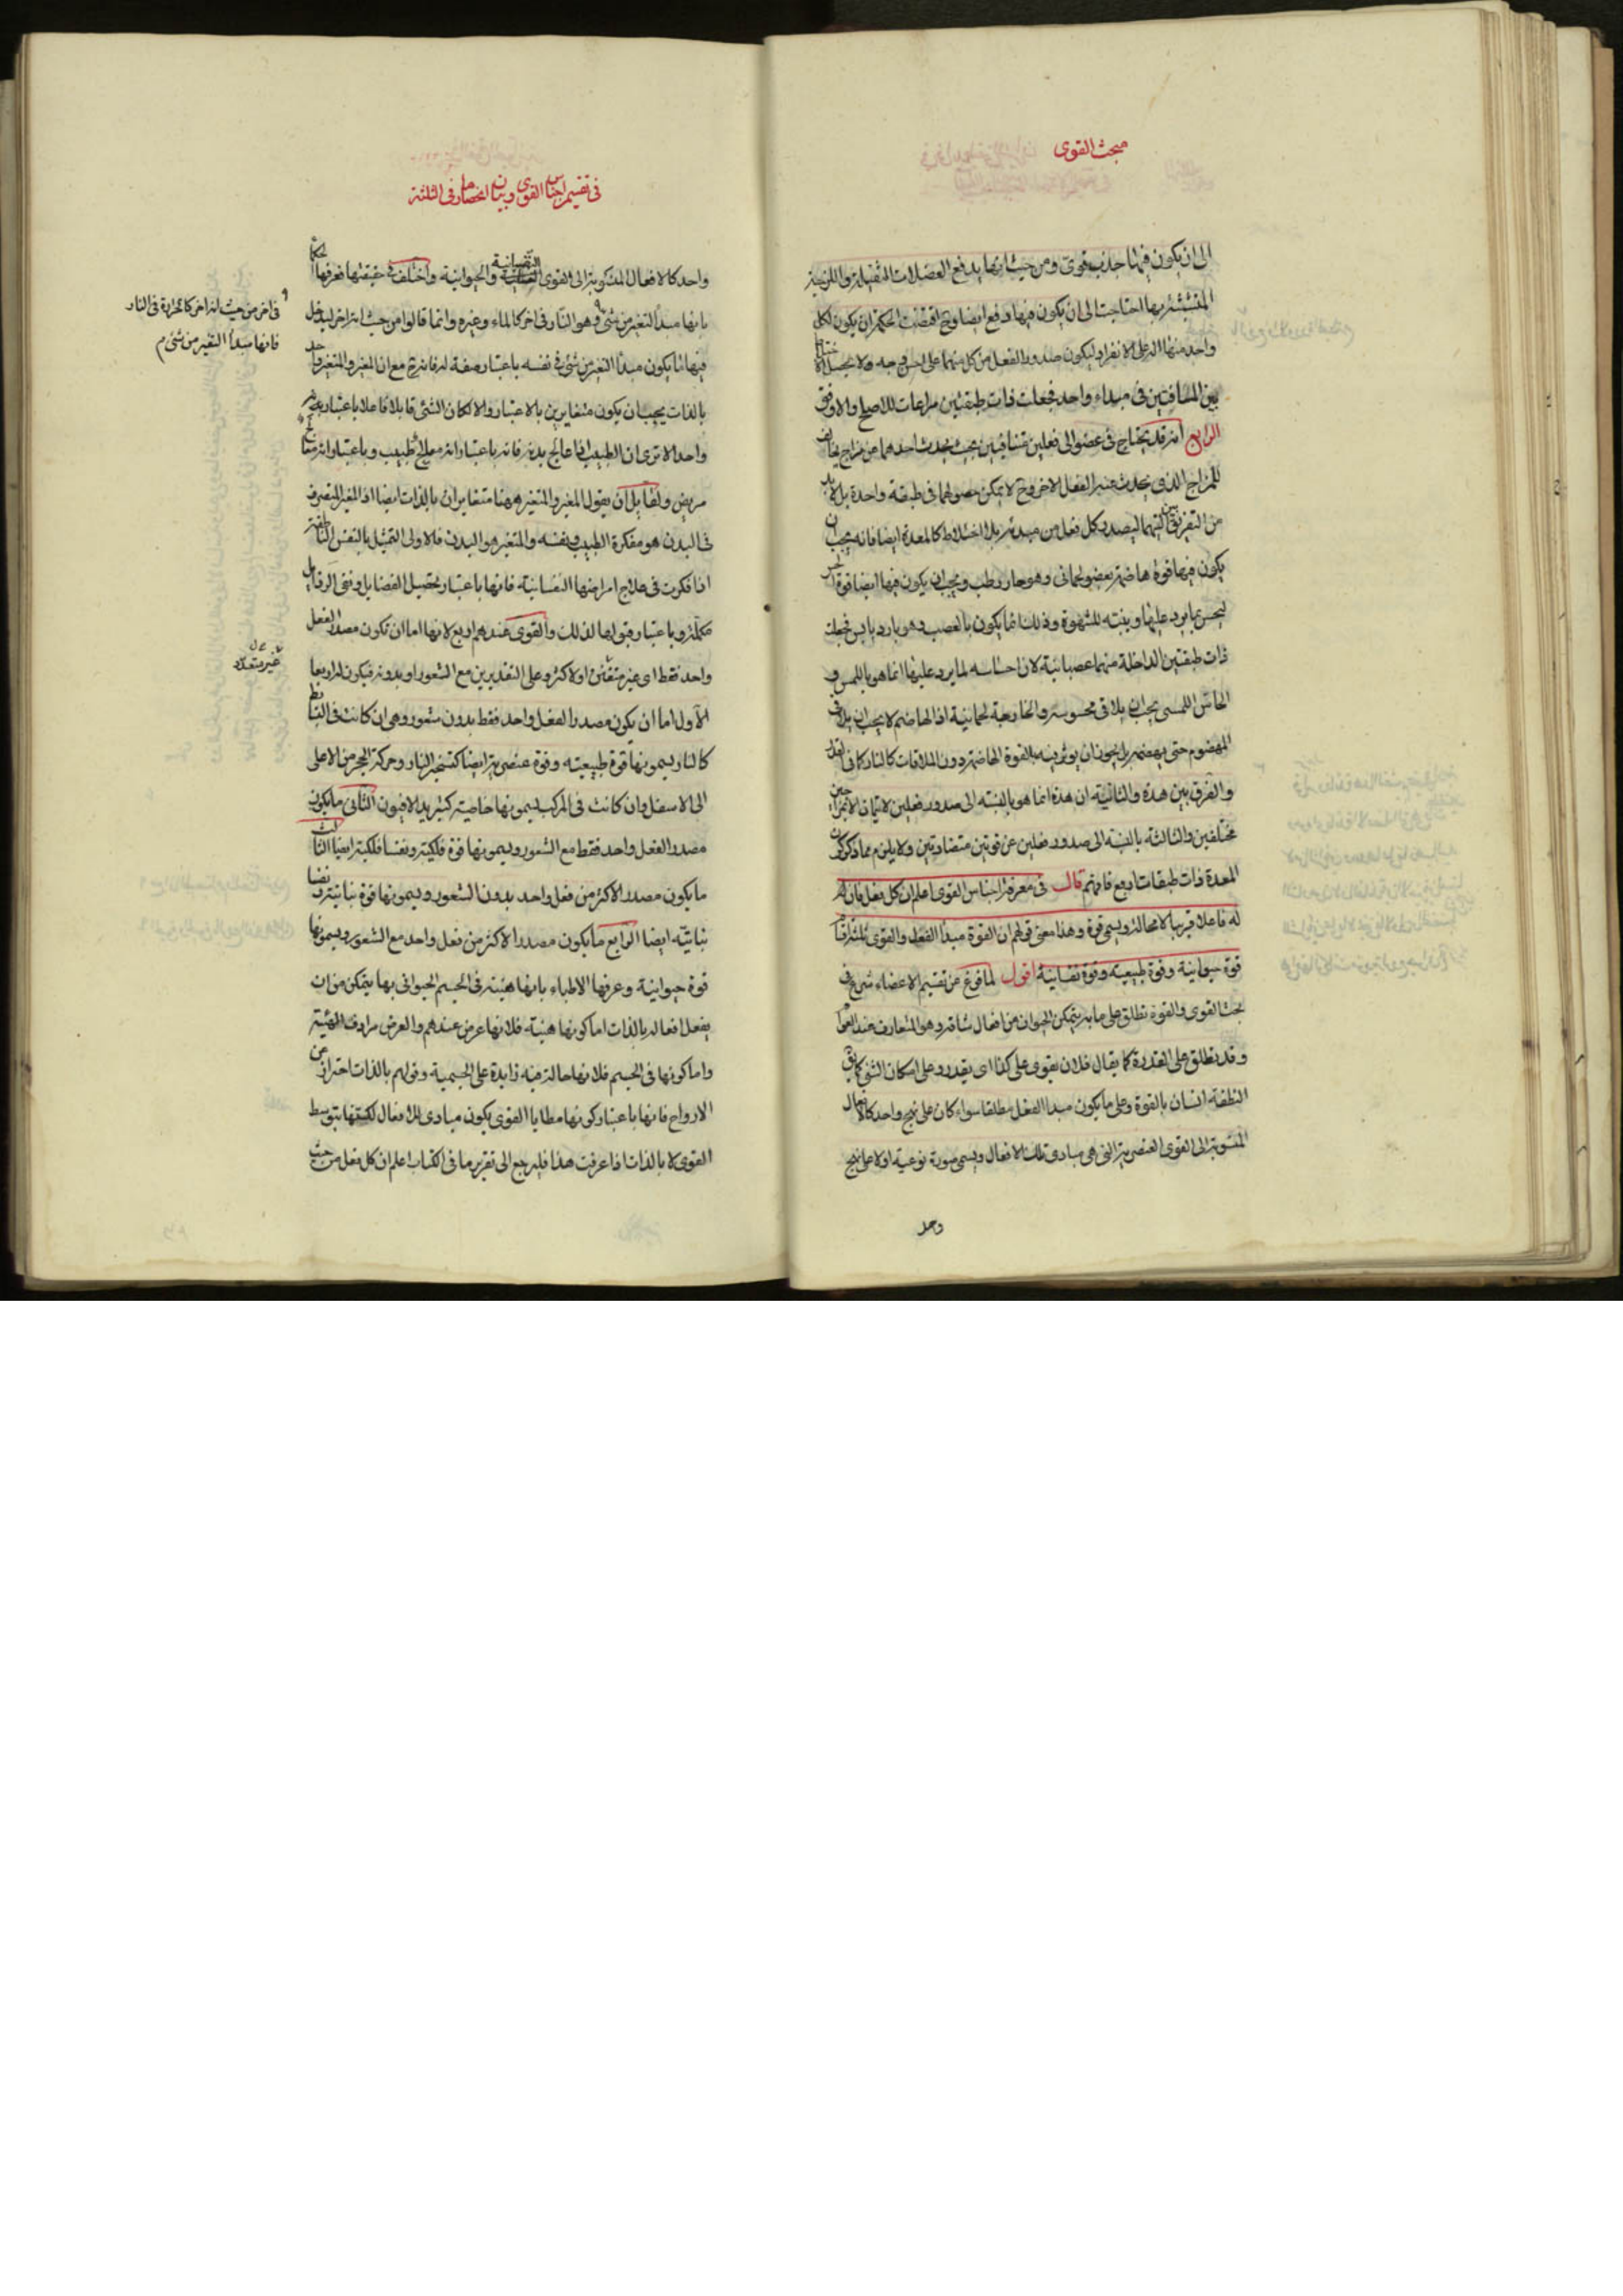 مبحث القوى
الى ان يكون فيها جذب قوى ومن حيث انها يدفع الفضلات الثقيلة واللزجة
المتشبثة بها احتاجت الى ان يكون فيها دفع ايضا وح اقتضت الحكمة ان يكون لكل
واحد منها آلة على الانفراد ليكون صدور الفعل من كل منهما على احسن وجه ولا يحصل
بين المنافيين فى مبداء واحد فجعلت ذات طبقتين مراعات للاصلح والاوفق
الرابع انه قد يحتاج فى عضو الى فعلين متنافيين بحيث يحدث احدهما عن مزاج يخالف
للمزاج الذى يحدث عنه الفعل الاخر وح لا يمكن حصولهما فى طبقة واحدة بل لابد
من التفريق بين آلتيهما ليصدر كل فعل من مبدئه بلا اختلاط كالمعدة ايضا فانه يجب ان
يكون فيها قوة هاضمة بعضو لحمانى وهو حار رطب ويجب ان يكون فيها ايضا قوة الحس
ليحس بما يرد عليها وينبه للشهوة وذلك انما يكون بالعصب وهو بارد يابس فجعلت
ذات طبقتين الداخلة منهما عصبانية لان احساسه لما يرد عليها انما هو باللمس و
الحاس اللمسى يجب ان يلاقى محسوسه والخارجة لحمانية اذ الهاضم لا يجب ان يلاقى
المهضوم حتى يهضمه بل يجوز ان يوثر فيه بالقوة الهاضمة دون الملاقات كالنار كما فى القدر
والفرق بين هذه والثانية ان هذه انما هو بالنسبة الى صدور فعلين لا يتمان الا بمزاجين
مختلفين والثالثة بالنسبة الى صدور فعلين عن قوتين متضادتين ولا يلزم مما ذكر كون
المعدة ذات طبقات اربع فافهم قال فى معرفة اجناس القوى اعلم ان كل فعل فان
له فاعلا قريبا لا محالة ويسمى قوة وهذا معنى قولهم ان القوة مبدأ الفعل والقوى ثلثة
قوة حيوانية وقوة طبيعية وقوة نفسانية اقول لما فرغ عن تقسيم الاعضاء شرع فى
بحث القوى والقوة تطلق على ما به يتمكن الحيوان من افعال شاقة وهو المتعارف عند العوام
وقد تطلق على القدرة كما يقال فلان يقوى على كذا اى يقدر وعلى امكان الشئ كما يق
النطفة انسان بالقوة وعلى ما يكون مبدا الفعل مطلقا سواء كان على نهج واحد كالافعال
المنسوبة الى القوى العنصرية التى هى مبادى تلك الافعال ويسمى صورة نوعية او لا على نهج
واحد
فى تقسيم اجناس القوى وبيان انحصارها فى الثلثة
واحد كالافعال المذكورة الى القوى النفسانية والحيوانية واختلف فى حقيقتها فعرفها الحكما
بانها مبدأ التغير من شئ وهو النار فى اخر كالماء وغيره وانما قالوا من حيث انه اخر ليدخل
فيها ما يكون مبدأ التغير من شئ فى نفسه باعتبار صفة له فانه ح مع ان المغير والمتغير واحد
بالذات يجب ان يكون متغايرين بالاعتبار والا لكان الشئ قابلا فاعلا باعتبار
واحد الا ترى ان الطبيب اذا عالج بدنه فانه باعتبار انه معالج طبيب وباعتبار انه متعالج
مريض ولقايل ان يقول المغير والمتغير ههنا متغايران بالذات ايضا اذ المغير المتصرف
فى البدن هو مفكرة الطبيب ونفسه والمتغير هو البدن فالاولى التمثيل بالنفس الناطقة
اذا فكرت فى علاج امراضها النفسانية فانها باعتبار تحصيل الفضايل ونفى الرذايل
مكملة وباعتبار قبولها لذلك والقوى عندهم اربع لانها اما ان تكون مصدر الفعل
واحد فقط اى غير متفنن او لاكثر وعلى التقديرين مع الشعور او بدونه فيكون اربعا
الاول اما ان يكون مصدر الفعل واحد فقط بدون شعور وهى ان كانت فى البسايط
كالنار يسمونها قوة طبيعية وقوة عنصرية ايضا كتسخير النار وحركة الحجر من الاعلى
الى الاسفل وان كانت فى المركب يسمونها خاصية كتبريد الافيون الثانى ما يكون
مصدر الفعل واحد فقط مع الشعور ويسمونها قوة فلكية ونفسا فلكية ايضا الثالث
ما يكون مصدر الاكثر من فعل واحد بدون الشعور ويسمونها قوة نباتية ونفسا
نباتية ايضا الرابع ما يكون مصدرا لاكثر من فعل واحد مع الشعور ويسمونها
قوة حيوانية وعرفها الاطباء بانها هيئة فى الجسم الحيوانى بها يتمكن من ان
يفعل افعاله بالذات اما كونها هيئة فلانها عرض عندهم والعرض مرادف الهيئة
واما كونها فى الجسم فلانها حالة فيه زايدة على الجسمية وقولهم بالذات احتراز عن
الارواح فانها باعتبار كونها مطايا القوى يكون مبادى للافعال لكنها بتوسط
القوى لا بالذات اذا عرفت هذا فليرجع الى تقرير ما فى الكتاب اعلم ان كل فعل من حيث
فى اخر من حيث انه اخر كالحرارة فى النار
فانها مبدأ التغير من شئ م
غير متعدد